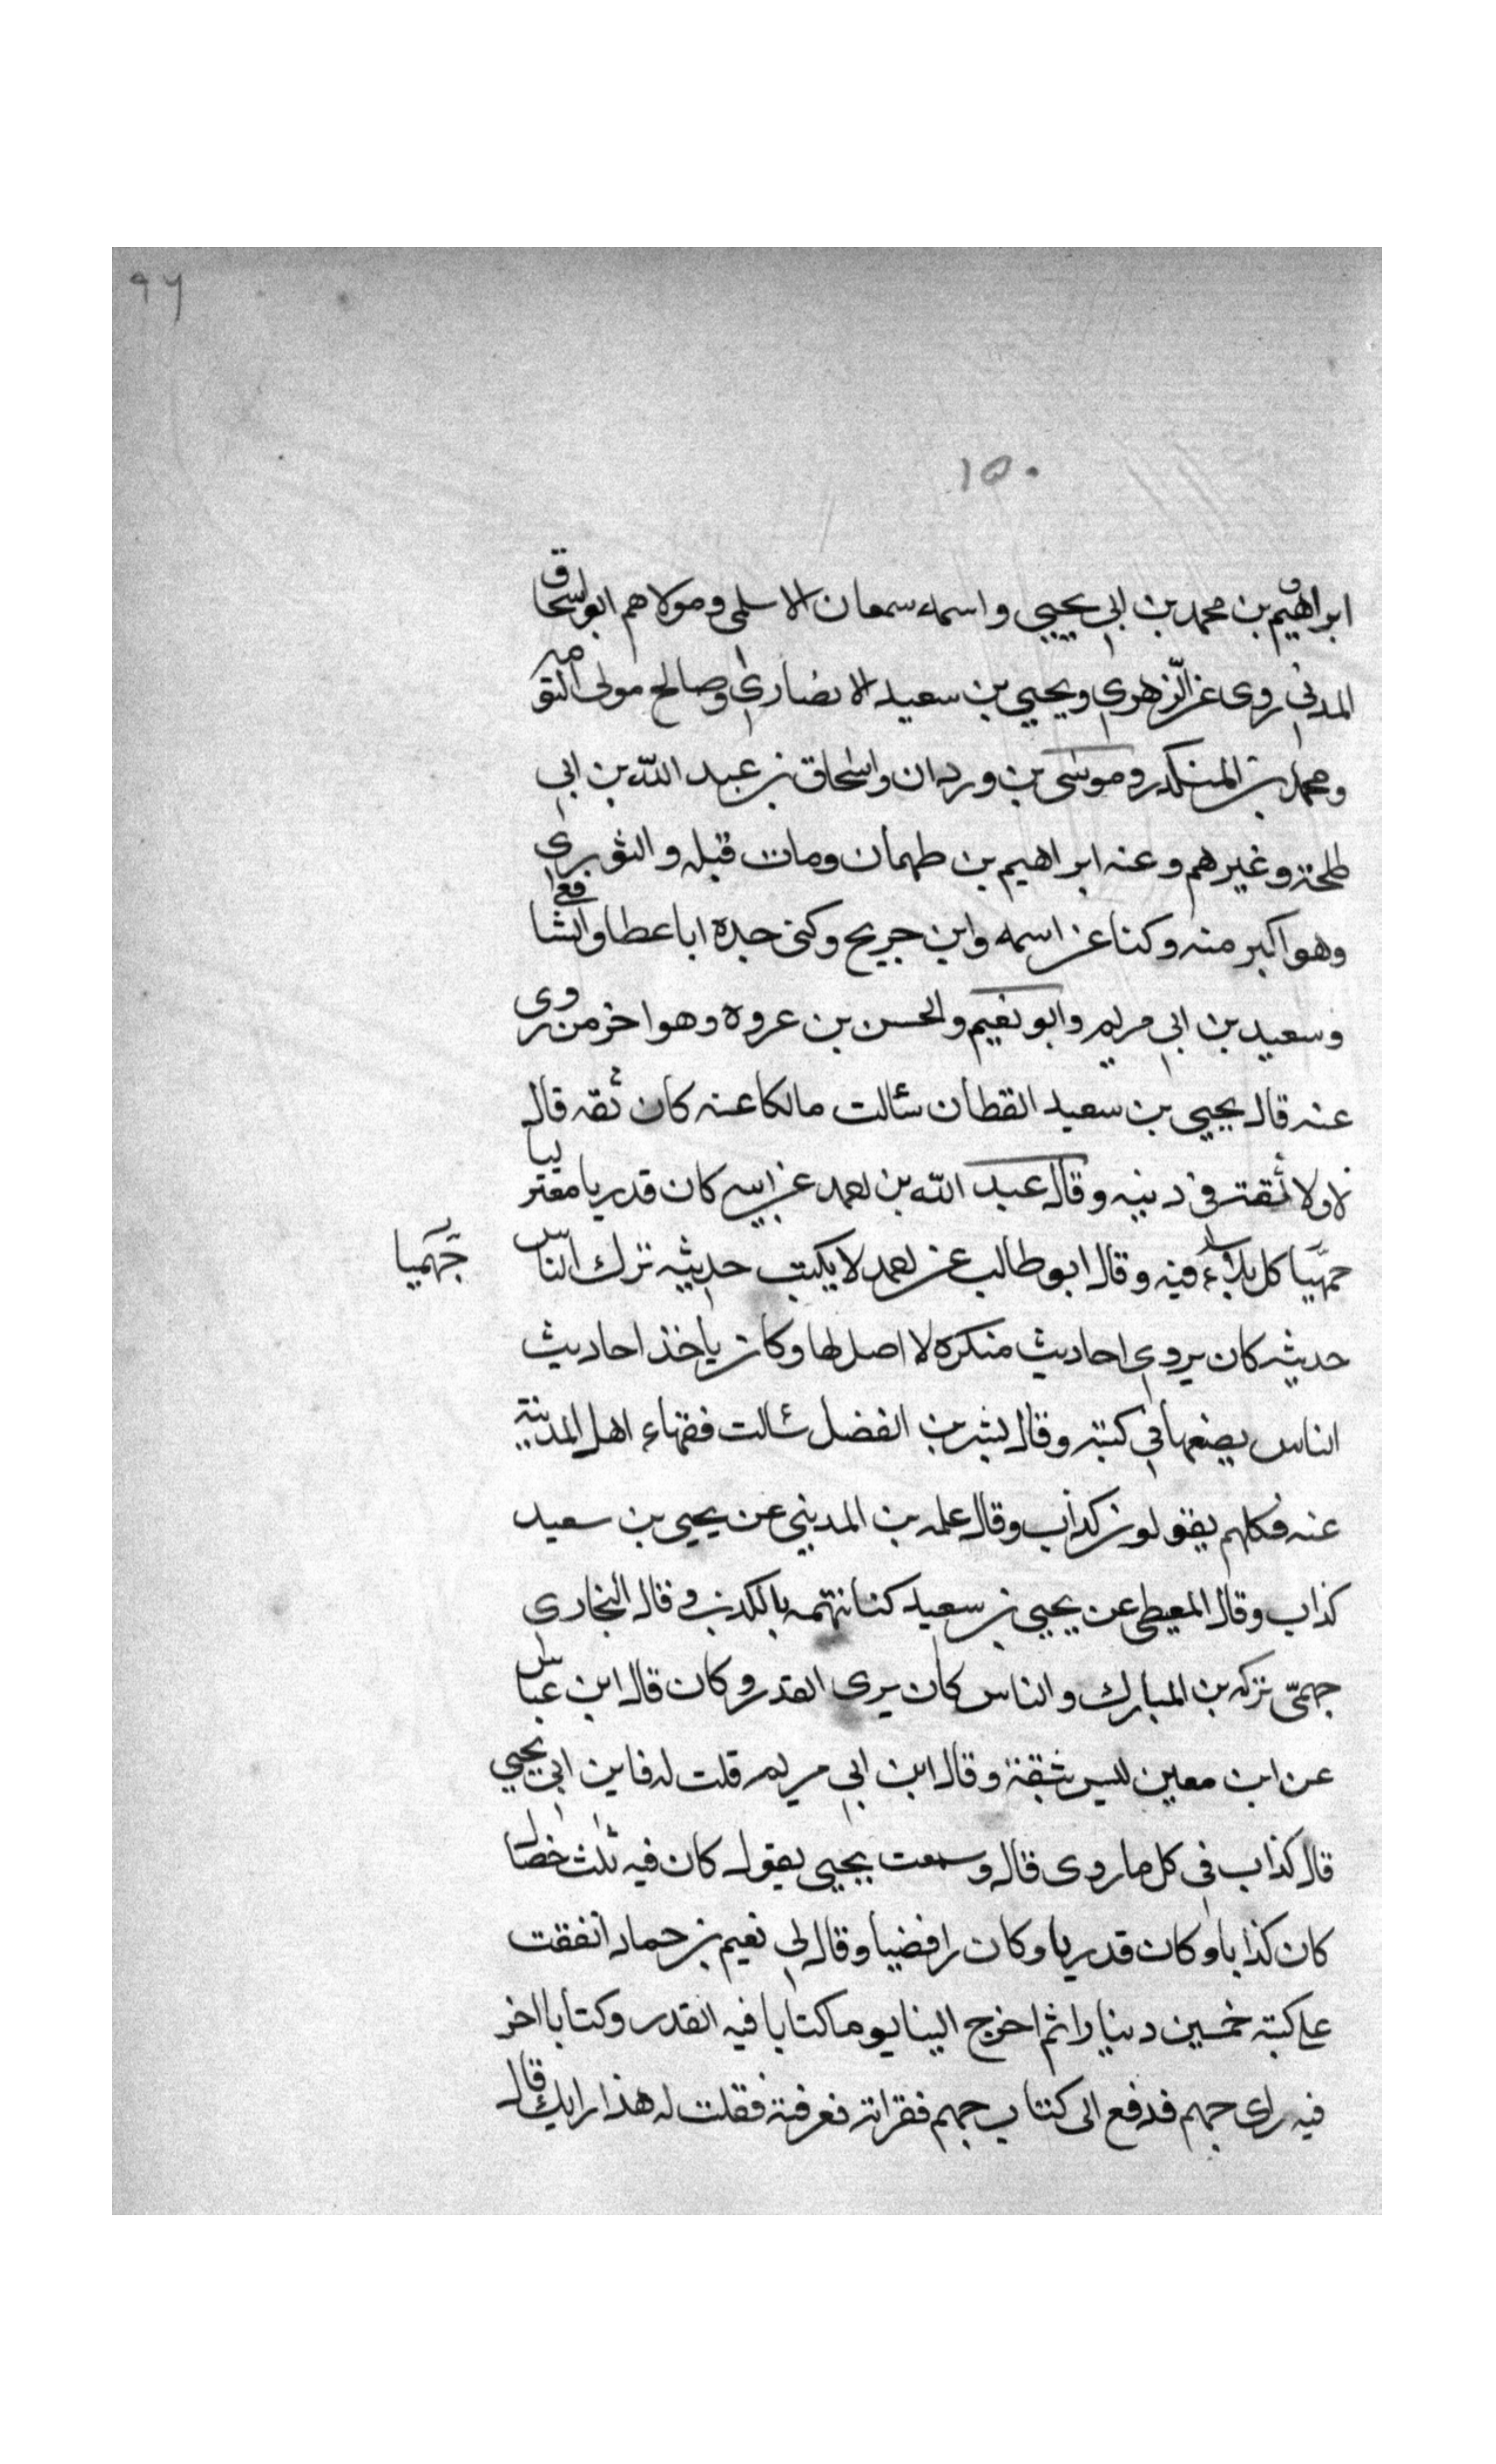 ٩٦
١٥٠
ابراهيم بن محمد بن ابي يحيى واسمه سمعان الاسلمى ومولاهم ابو اسحاق
المدنى روى عن الزهرى ويحيى بن سعيد الانصارى وصالح مولى التومه
ومحمد بن المنكدر وموسى بن وردان واسحاق بن عبد الله بن ابى
طلحة وغيرهم وعنه ابراهيم بن طهمان ومات قبله والثورى
وهو اكبر منه وكنا عن اسمه وابن جريح وكنى جده ابا عطا والشافعى
وسعيد بن ابى مريم وابو نعيم والحسن بن عروه وهو اخر من روى
عنه قال يحيى بن سعيد القطان سئالت مالكا عنه كان ثقه قال
لا ولا ثقة فى دينه وقال عبد الله بن احمد عن ابيه كان قدريا معتزليا
جهميا كل بلاء فيه وقال ابو طالب عن احمد لا يكتب حديثه ترك الناس
جهميا
حديثه كان يروى احاديث منكره لا اصل لها وكان ياخذ احاديث
الناس يضعها فى كتبه وقال بشر بن الفضل سئالت فقهاء اهل المدينة
عنه فكلهم يقولون كذاب وقال على بن المدينى عن يحيى بن سعيد
كذاب وقال المعيطى عن يحيى بن سعيد كنا نتهمه بالكذب وقال البخارى
جهمىّ تركه بن المبارك والناس كان يرى القدر وكان قال ابن عباس
عن ابن معين ليس بثقة وقال ابن ابى مريم قلت له فاين ابى يحيى
قال كذاب فى كل ما روى قال وسمعت يحيى يقول كان فيه ثلث خصال
كان كذابا وكان قدريا وكان رافضيا وقال لى نعيم بن حماد انفقت
على كتبه خمسين دينارا ثم اخرج الينا يوما كتابا فيه القدر وكتابا اخر
فيه راى جهم فدفع الى كتاب جهم فقراته فعرفته فقلت له هذا رايك قال